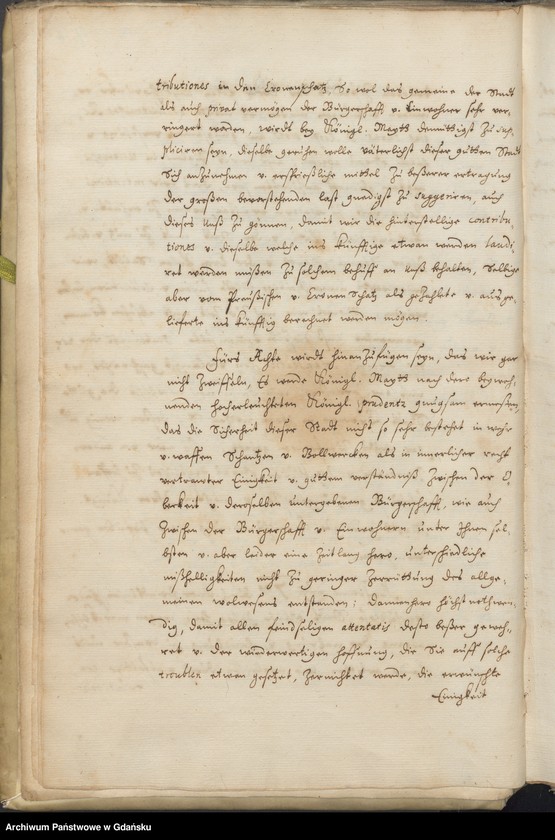 tributiones in den Cronenschatz. So wol das gemeine der Stadt
als auch privat vermögen der Bürgerschafft v. Einwohner sehr ver¬
ringert worden, wirdt bey Königl. Maytt demüthigst zu sup¬
pliciren seyn, dieselbe geruhen wolle väterlichst dieser guthen Stadt
Sich anzunehmen v. ersprießliche mittel zu beßerer ertragung
der großen bevorstehenden last gnädigst zu suggeriren, auch
dieses Unß zu gönnen, damit wir die hinterstellige contribu¬
tiones v. dieselbe welche ins künfftige etwan werden laudi¬
ret werden müßen zu solchem behuff an Unß behalten, Selbige
aber vom Preußischen v. Cronen Schatz als gezahlete v. außge¬
lieferte ins künfftig berechnet werden mögen.
Fürs Achte wirdt hinanzufügen seyn, das wir gar
nicht zweiffeln, Es werde Königl. Maytt nach dero beywoh¬
nenden hocherleuchteten Königl. prudentz gnugsam ermeßen
das die Sicherheit dieser Stadt nicht so sehr bestehet in wehr
v. waffen Schantzen v. Bollwercken als in innerlicher recht
vertrauter Einigkeit v. guthem verständniß zwischen der O¬
berkeit v. derselben untergebenen Bürgerschafft, wie auch
zwischen der Bürgerschafft v. Einwohnern unter Ihnen sel¬
bsten v. aber leider eine zeitlang hero, unterschiedliche
mißhelligkeiten nicht zu geringer zerrüttung des allge¬
meinen wolwesens entstanden: dannenhero höchst nothwen¬
dig, damit allen feindseligen attentatis desto beßer geweh¬
ret v. der wiederwertigen hoffnung, die Sie auff solche
troublen etwan gesetzet, zernichtet werde, die erwünschte
Einigkeit
Archiwum Państwowe w Gdańsku